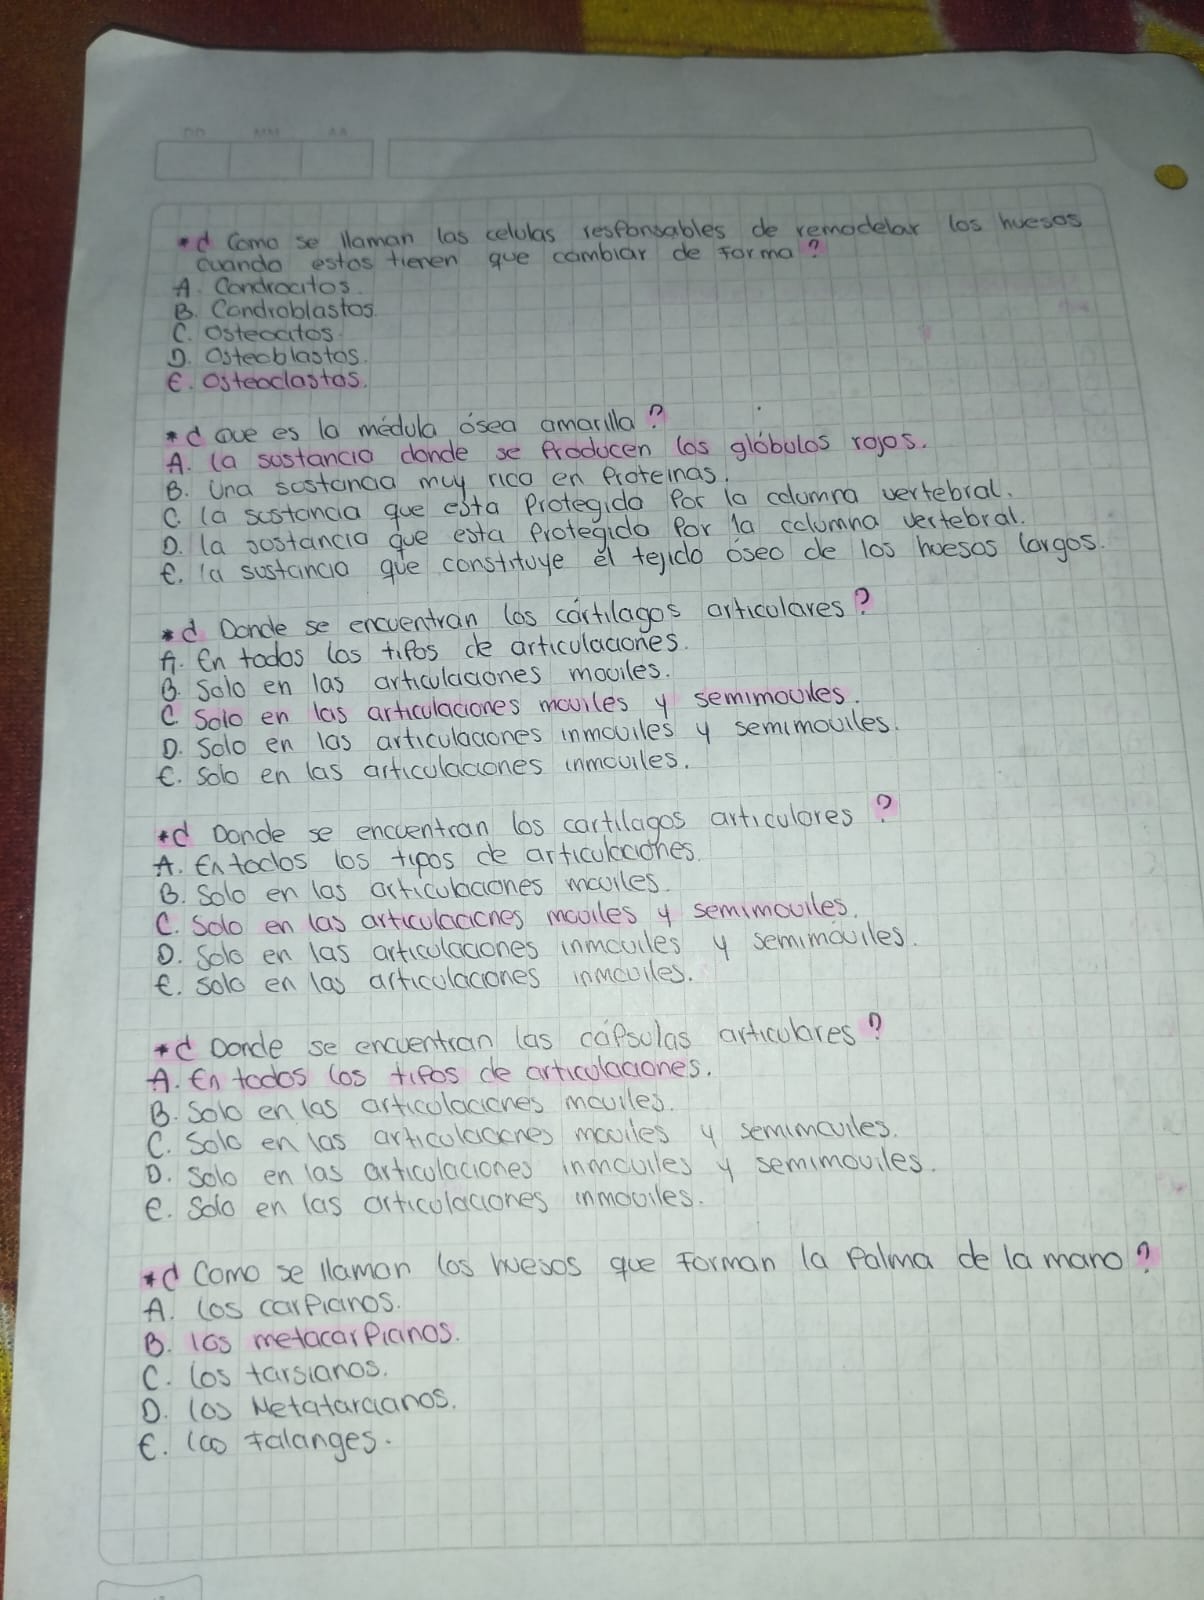 DD MM AA
*¿ Como se llaman las celulas responsables de remodelar los huesos
cuando estos tienen que cambiar de forma?
A. Condrocitos.
B. Condroblastos.
C. Osteocitos.
D. Osteoblastos.
E. Osteoclastos.
*¿ Que es la médula ósea amarilla?
A. la sustancia donde se Producen los glóbulos rojos.
B. Una sustancia muy rica en Proteinas.
C. la sustancia que esta Protegida Por la columna vertebral.
D. la sustancia que esta Protegida Por la columna vertebral.
E. la sustancia que constituye el tejido óseo de los huesos largos.
*¿ Donde se encuentran los cartilagos articulares?
A. En todos los tipos de articulaciones.
B. Solo en las articulaciones moviles.
C. Solo en las articulaciones moviles y semimoviles.
D. Solo en las articulaciones inmoviles y semimoviles.
E. Solo en las articulaciones inmoviles.
*¿ Donde se encuentran los cartilagos articulares?
A. En todos los tipos de articulaciones.
B. Solo en las articulaciones moviles.
C. Solo en las articulaciones moviles y semimoviles.
D. Solo en las articulaciones inmoviles y semimóviles.
E. Solo en las articulaciones inmoviles.
*¿ Donde se encuentran las cápsulas articulares?
A. En todos los tipos de articulaciones.
B. Solo en las articulaciones moviles.
C. Solo en las articulaciones moviles y semimoviles.
D. Solo en las articulaciones inmoviles y semimoviles.
E. Solo en las articulaciones inmoviles.
*¿ Como se llaman los huesos que Forman la Palma de la mano?
A. los carPianos.
B. los metacarPianos.
C. los tarsianos.
D. los Metatarcianos.
E. las Falanges.